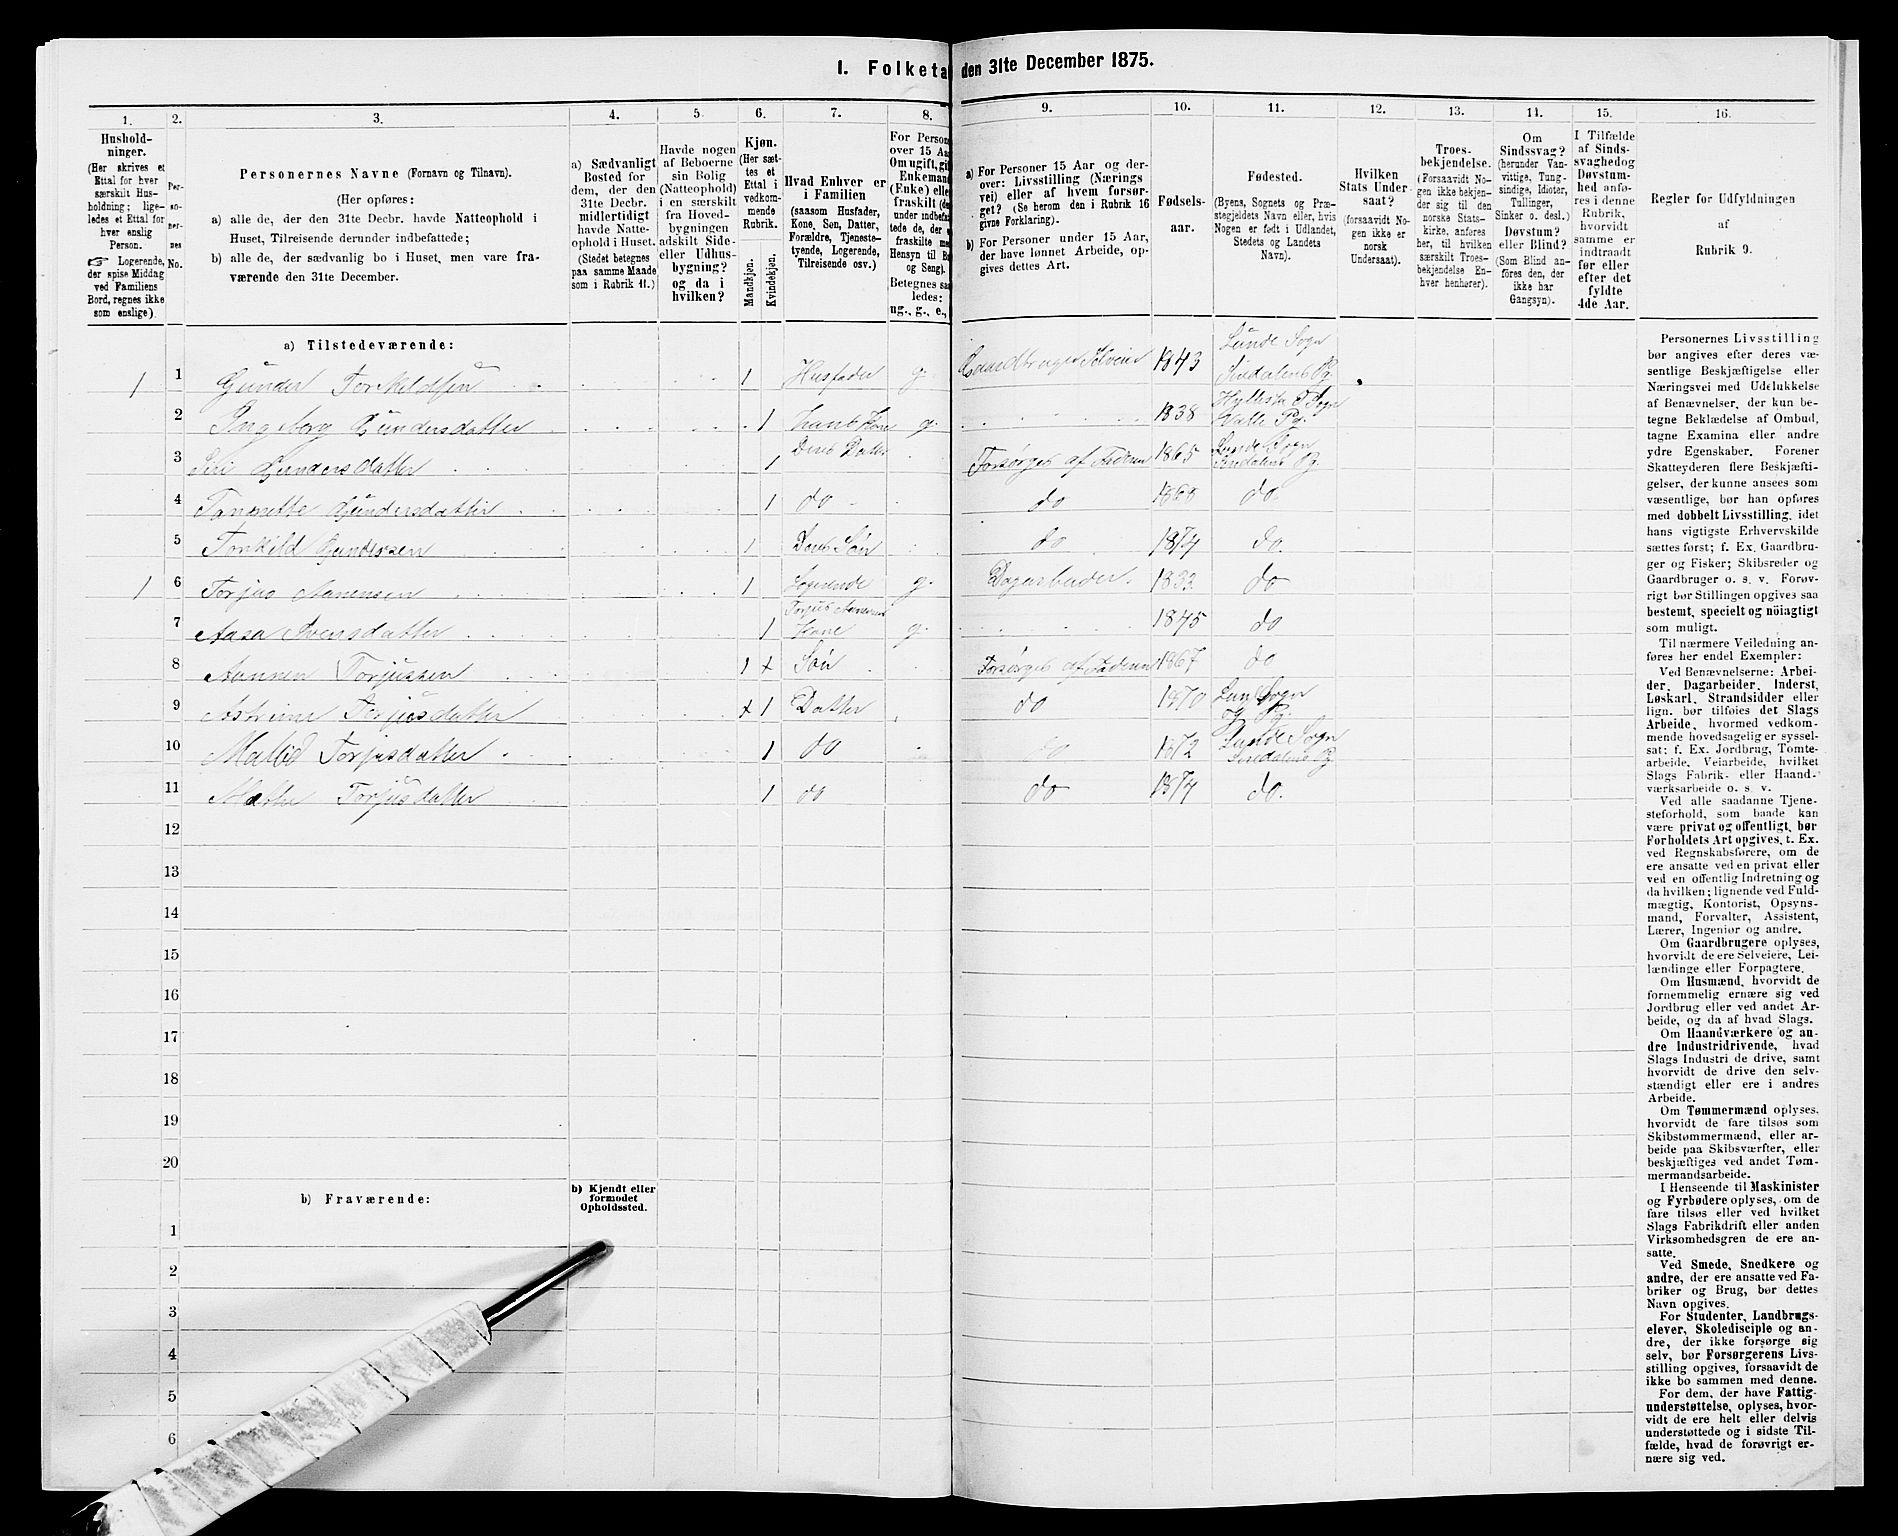 I. Folketa den 31te December 1875.
1.
Hushold-
ninger.
(Her skrives et
Ettal for hver
særskilt Hus-
holdning; lige-
ledes et Ettal for
hver enslig
Person.
☞ Logerende,
der spise Middag
ved Familiens
Bord, regnes ikke
som enslige).
2.
Per-
so-
ner-
nes
No.
3.
Personernes Navne (Fornavn og Tilnavn).
(Her opføres:
a) alle de, der den 31te Decbr. havde Natteophold i
Huset, Tilreisende derunder indbefattede;
b) alle de, der sædvanlig bo i Huset, men vare fra-
værende den 31te December.
4.
a) Sædvanligt
Bosted for
dem, der den
31te Decbr.
midlertidigt
havde Natte-
ophold i Huset.
(Stedet betegnes
paa samme Maade
som i Rubrik 11.)
5.
Havde nogen
af Beboerne
sin Bolig
(Natteophold)
i en særskilt
fra Hoved-
bygningen
adskilt Side-
eller Udhus-
bygning?
og da i
hvilken?
6.
Kjøn.
(Her sæt-
tes et
Ettal i
vedkom-
mende
Rubrik.
Mandkjøn.
Kvindekjøn.
7.
Hvad Enhver er
i Familien
(saasom Husfader,
Kone, Søn, Datter,
Forældre, Tjeneste-
tyende, Logerende,
Tilreisende osv.)
8.
For Person
over 15 Aa
Om ugift, gif
Enkemand
(Enke) elle
fraskilt (de
under indbefa
tede de, der e
fraskilte me
Hensyn til Bo
og Seng).
Betegnes saa
ledes:
ug., g., e.,
9.
a) For Personer 15 Aar og der-
over: Livsstilling (Nærings
vei) eller af hvem forsør-
get? (Se herom den i Rubrik 16
givne Forklaring).
b) For Personer under 15 Aar,
der have lønnet Arbeide, op-
gives dettes Art.
10.
Fødsels-
aar.
11.
Fødested.
(Byens, Sognets og Præ-
stegjeldets Navn eller, hvis
Nogen er født i Udlandet,
Stedets og Landets
Navn).
12.
Hvilken
Stats Under-
saat?
(forsaavidt No-
gen ikke er
norsk
Undersaat).
13.
Troes-
bekjendelse.
(Forsaavidt No-
gen ikke bekjen-
der sig til den
norske Stats-
kirke, anføres
her, til hvilken
særskilt Troes-
bekjendelse En-
hver henhører).
14.
Om
Sindssvag?
(herunder Van-
vittige, Tung-
sindige, Idioter,
Tullinger,
Sinker o. desl.)
Døvstum?
eller Blind?
(Som Blind an-
føres den, der
ikke har
Gangsyn).
15.
I Tilfælde
af Sinds-
svaghed og
Døvstum-
hed anfø-
res i denne
Rubrik,
hvorvidt
samme er
indtraadt
før eller
efter det
fyldte
4de Aar.
16.
Regler for Udfyldningen
af
Rubrik 9.
a) Tilstedeværende:
1 1 Gunder Torkildsen 1 Husfader g. Gaardbruger Selveier 1843 Lunde Sogn
Sindalens Pg.
2 Ingeborg Gundersdatter 1 hans Kone g. 1838 Hyllestad Sogn
Valle Pg.
3 Siri Gundersdatter 1 Deres Datter Forsørges af Faderen 1865 Lunde Sogn
Sindalens Pg.
4 Gundersdatter 1 do do do.
5 Torkild Gundersen 1 Deres Søn do 1874 do.
1 6 Torjus Aanensen 1 Logerende g. Dagarbeider. 1833. do
7 Aasa Svensdatter 1 Torjus Aanensens
Kone g. 1845 do
8 Aanen Torjussen 1 + Søn Forsørges af Faderen 1867 do
9 Torjusdatter + 1 Datter do 1870 Lunds Sogn
og Pg.
10 Torjusdatter 1 do do 1872 Lunde Sogn
Sindalens Pg.
11 Torjusdatter 1 do do 1874 do.
12
13
14
15
16
17
18
19
20
b) Fraværende:
b) Kjendt eller
formodet
Opholdssted.
1
2
3
4
5
6
Personernes Livsstilling
bør angives efter deres væ-
sentlige Beskjæftigelse eller
Næringsvei med Udelukkelse
af Benævnelser, der kun be-
tegne Beklædelse af Ombud,
tagne Examina eller andre
ydre Egenskaber. Forener
Skatteyderen flere Beskjæfti-
gelser, der kunne ansees som
væsentlige, bør han opføres
med dobbelt Livsstilling, idet
hans vigtigste Erhvervskilde
sættes først; f. Ex. Gaardbru-
ger og Fisker; Skibsreder og
Gaardbruger o. s. v. Forøv-
rigt bør Stillingen opgives saa
bestemt, specielt og nøiagtigt
som muligt.
Til nærmere Veiledning an-
føres her endel Exempler:
Ved Benævnelserne: Arbei-
der, Dagarbeider, Inderst,
Løskarl, Strandsidder eller
lign. bør tilføies det Slags
Arbeide, hvormed vedkom-
mende hovedsagelig er syssel-
sat; f. Ex. Jordbrug, Tomte-
arbeide, Veiarbeide, hvilket
Slags Fabrik- eller Haand-
værksarbeide o. s. v.
Ved alle saadanne Tjene-
steforhold, som baade kan
være privat og offentligt, bør
Forholdets Art opgives, t. Ex.
ved Regnskabsførere, om de
ere ansatte ved en privat eller
ved en offentlig Indretning og
da hvilken; lignende ved Fuld-
mægtig, Kontorist, Opsyns-
mand, Forvalter, Assistent,
Lærer, Ingeniør og andre.
Om Gaardbrugere oplyses,
hvorvidt de ere Selveiere, Lei-
lændinge eller Forpagtere.
Om Husmænd, hvorvidt de
fornemmelig ernære sig ved
Jordbrug eller ved andet Ar-
beide, og da af hvad Slags.
Om Haandværkere og an-
dre Industridrivende, hvad
Slags Industri de drive, samt
hvorvidt de drive den selv-
stændigt eller ere i andres
Arbeide.
Om Tømmermænd oplyses,
hvorvidt de fare tilsøs som
Skibstømmermænd, eller ar-
beide paa Skibsværfter, eller
beskjæftiges ved andet Tøm-
mermandsarbeide.
I Henseende til Maskinister
og Fyrbødere oplyses, om de
fare tilsøs eller ved hvilket
Slags Fabrikdrift eller anden
Virksomhedsgren de ere an-
satte.
Ved Smede, Snedkere og
andre, der ere ansatte ved Fa-
briker og Brug, bør dettes
Navn opgives.
For Studenter, Landbrugs-
elever, Skoledisciple og an-
dre, der ikke forsørge sig
selv, bør Forsørgerens Livs-
stilling opgives, forsaavidt de
ikke bo sammen med denne.
For dem, der have Fattig-
understøttelse, oplyses, hvor-
vidt de ere helt eller delvis
understøttede og i sidste Til-
fælde, hvad de forøvrigt er-
nære sig ved.